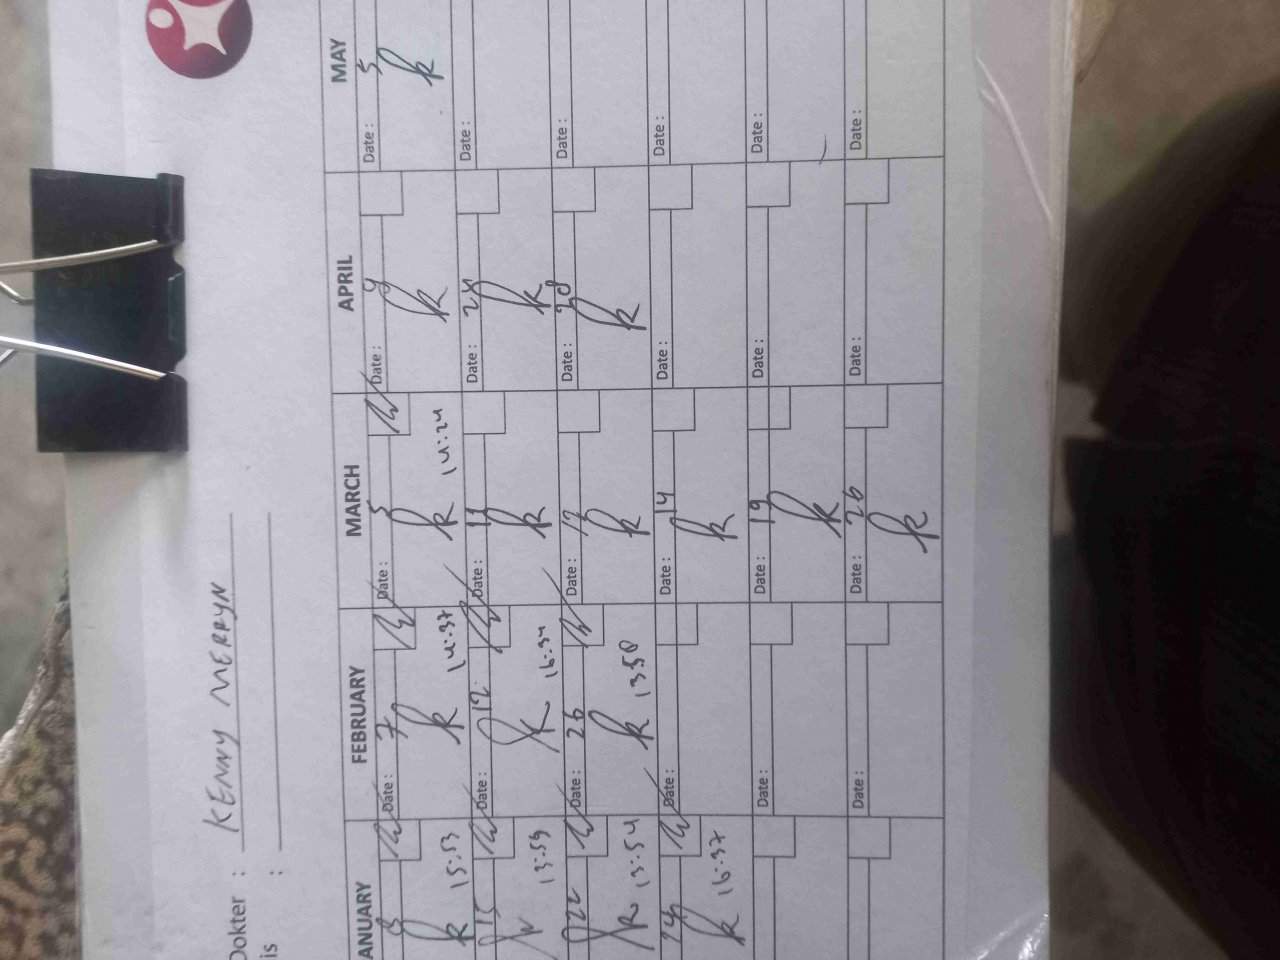 Dokter : KENNY MERRYN
is :
ANUARY FEBRUARY MARCH APRIL MAY
8 Date : 7 Date : 5 Date : 9 Date : 5
15:53 14:37 14:24
15 Date : 12 Date : 11 Date : 24 Date :
13:59 16:34
22 Date : 26 Date : 12 Date : 28 Date :
13:54 1350
Date : Date : 14 Date : Date :
16:37
Date : Date : 19 Date : Date :
Date : Date : 26 Date : Date :